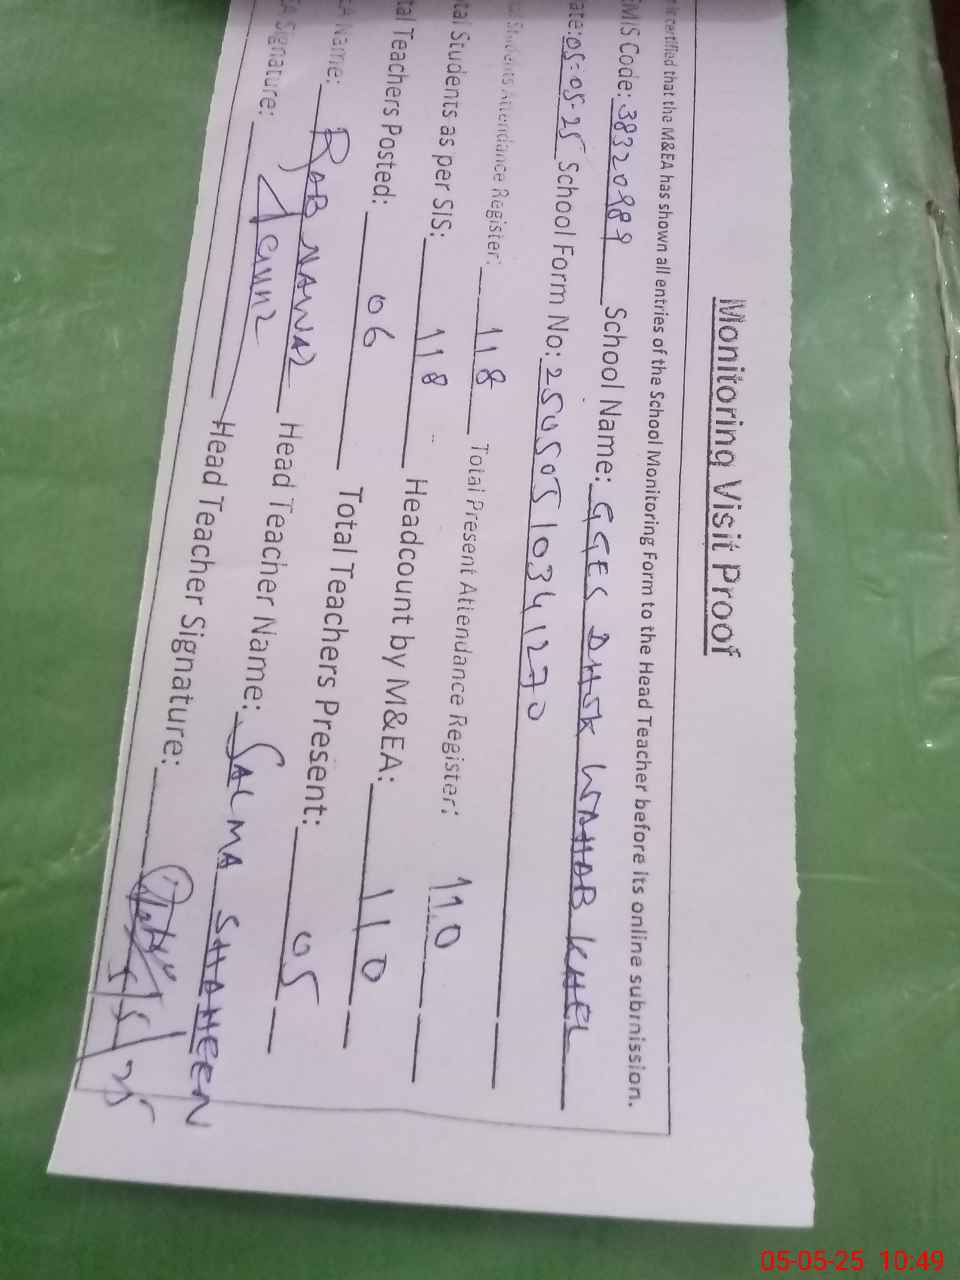 Monitoring Visit Proof
certified that the M&EA has shown all entries of the School Monitoring Form to the Head Teacher before its online submission.
EMIS Code: 38320989 School Name: GGES DHOK WAHAB KHEL
ate: 05-05-25 School Form No: 25050510341270
Students Attendance Register: 118 Total Present Attendance Register: 110
tal Students as per SIS: 118 Headcount by M&EA: 110
tal Teachers Posted: 06 Total Teachers Present: 05
EA Name: RAB NAWAZ Head Teacher Name: SALMA SHAHEEN
EA Signature: Head Teacher Signature:
5/5/25
05-05-25 10:49